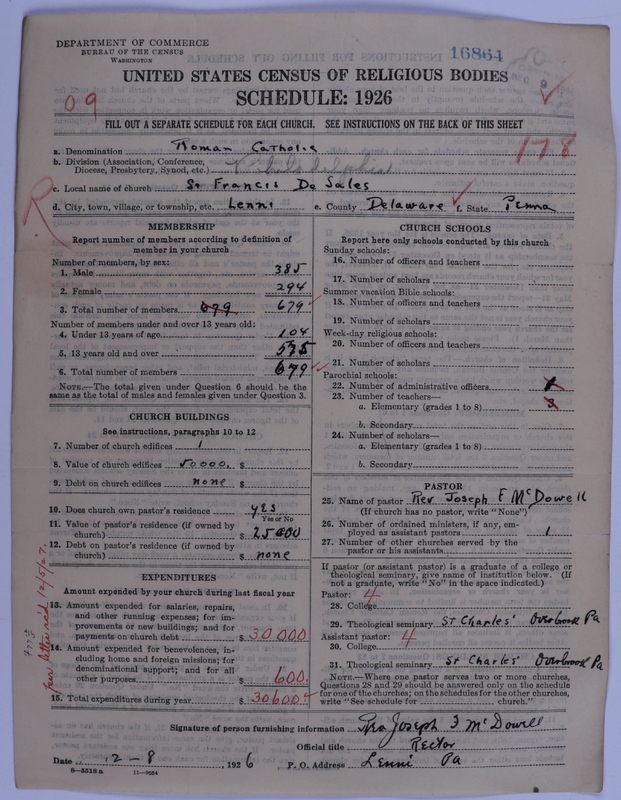 DEPARTMENT OF COMMERCE
BUREAU OF THE CENSUS
WASHINGTON
16864
UNITED STATES CENSUS OF RELIGIOUS BODIES
SCHEDULE: 1926
09
FILL OUT A SEPARATE SCHEDULE FOR EACH CHURCH. SEE INSTRUCTIONS ON THE BACK OF THIS SHEET
178
a. Denomination Roman Catholic
b. Division (Association, Conference, Diocese, Presbytery, Synod, etc.) Philadelphia
c. Local name of church St Francis De Sales
d. City, town, village, or township, etc. Lenni e. County Delaware f. State Penna
R
MEMBERSHIP
Report number of members according to definition of member in your church
Number of members, by sex:
1. Male 385
2. Female 294
3. Total number of members 679 679
Number of members under and over 13 years old:
4. Under 13 years of age 104
5. 13 years old and over 575
6. Total number of members 679
NOTE.—The total given under Question 6 should be the same as the total of males and females given under Question 3.
CHURCH BUILDINGS
See instructions, paragraphs 10 to 12
7. Number of church edifices 1
8. Value of church edifices 50000. $
9. Debt on church edifices none $
10. Does church own pastor's residence yes
Yes or No
11. Value of pastor's residence (if owned by church) $ 25000
12. Debt on pastor's residence (if owned by church) $ none
EXPENDITURES
Amount expended by your church during last fiscal year
13. Amount expended for salaries, repairs, and other running expenses; for improvements or new buildings; and for payments on church debt $ 30000
14. Amount expended for benevolences, including home and foreign missions; for denominational support; and for all other purposes $ 600.
15. Total expenditures during year $ 30600.
CHURCH SCHOOLS
Report here only schools conducted by this church
Sunday schools:
16. Number of officers and teachers
17. Number of scholars
Summer vacation Bible schools:
18. Number of officers and teachers
19. Number of scholars
Week-day religious schools:
20. Number of officers and teachers
21. Number of scholars
Parochial schools:
22. Number of administrative officers 1
23. Number of teachers—
a. Elementary (grades 1 to 8) 3
b. Secondary
24. Number of scholars—
a. Elementary (grades 1 to 8)
b. Secondary
PASTOR
25. Name of pastor Rev Joseph F McDowell
(If church has no pastor, write "None")
26. Number of ordained ministers, if any, employed as assistant pastors 1
27. Number of other churches served by the pastor or his assistants
If pastor (or assistant pastor) is a graduate of a college or theological seminary, give name of institution below. (If not a graduate, write "No" in the space indicated.)
Pastor: 4
28. College
29. Theological seminary St Charles' Overbrook Pa
Assistant pastor: 4
30. College
31. Theological seminary St Charles' Overbrook Pa
NOTE.—Where one pastor serves two or more churches, Questions 28 and 29 should be answered only on the schedule for one of the churches; on the schedules for the other churches, write "See schedule for church."
Signature of person furnishing information Rev Joseph F McDowell
Official title Rector
Date 12-8, 1926 P. O. Address Lenni Pa
8—5518a 11—9684